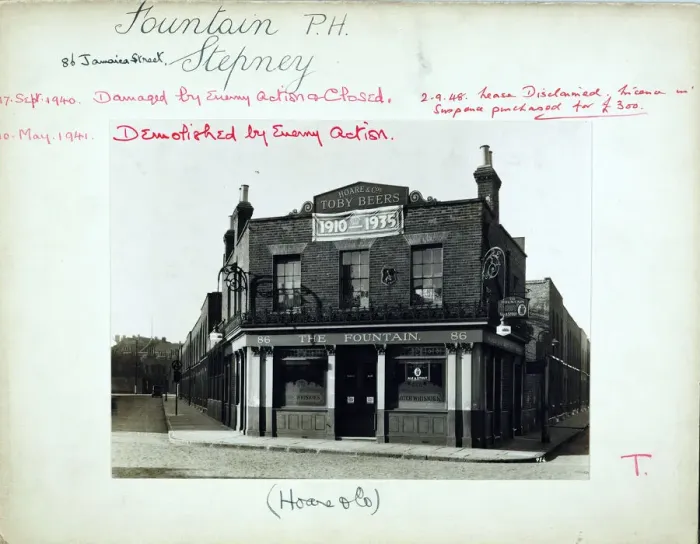 Fountain P.H.
86 Jamaica Street,
Stepney
7. Sept. 1940. Damaged by Enemy Action & Closed.
2-9.48. Lease Disclaimed. Licence in
Suspense purchased for £300.
10. May. 1941. Demolished by Enemy Action.
HOARE & Co
TOBY BEERS
1910 1935
86 THE FOUNTAIN. 86
T.
(Hoare & Co)